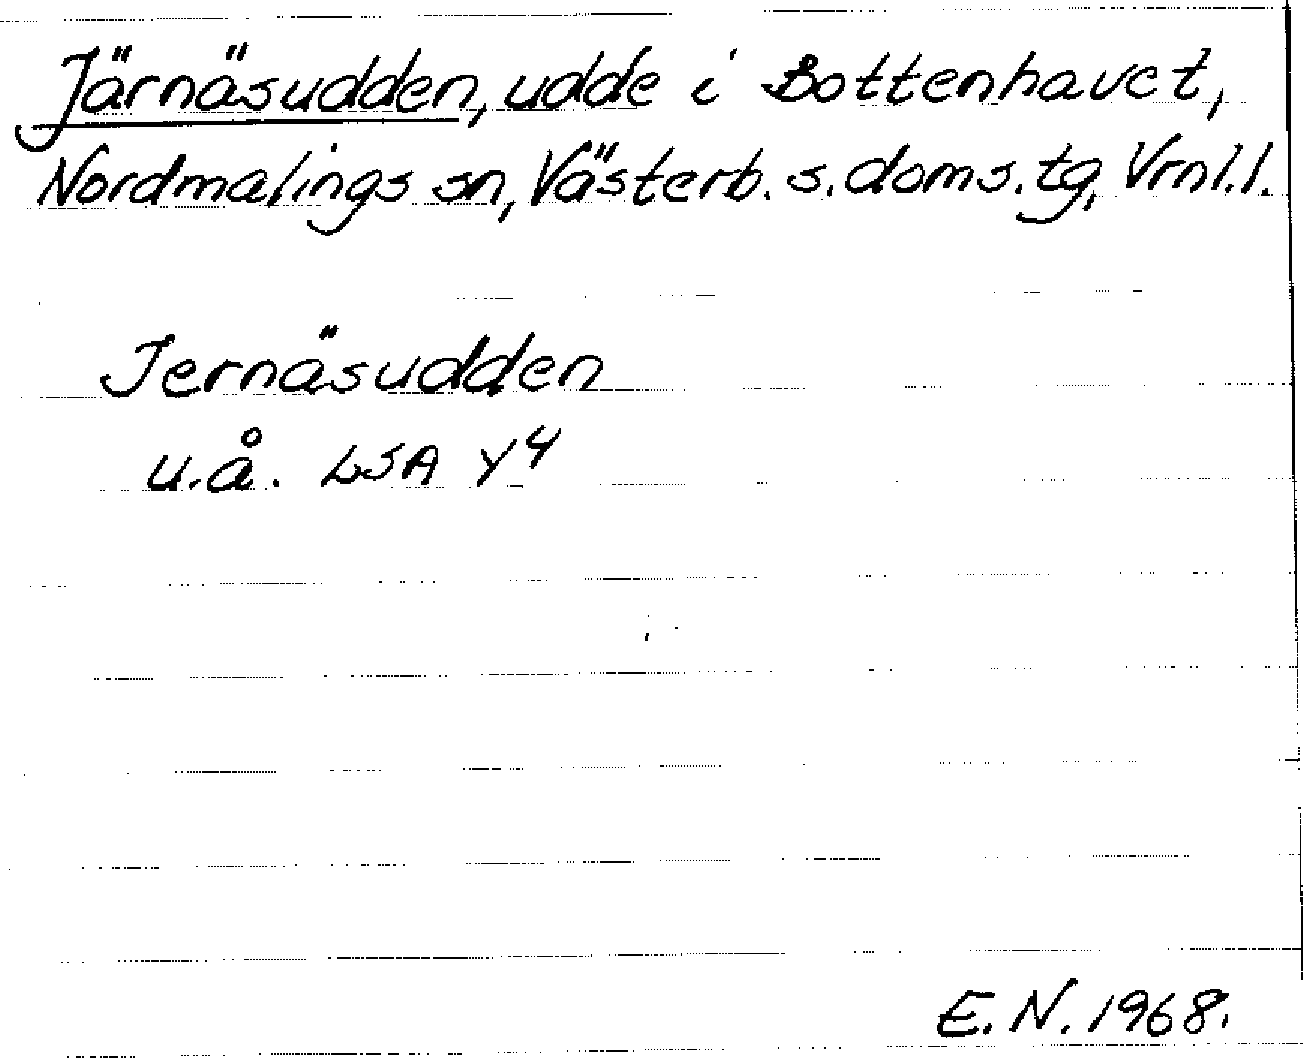 Järnäsudden, udde i Bottenhavet,
Nordmalings sn, Västerb. s. doms. tg, Vrnl. l.
Jernäsudden
u.å. LSA Y4
E. N. 1968.